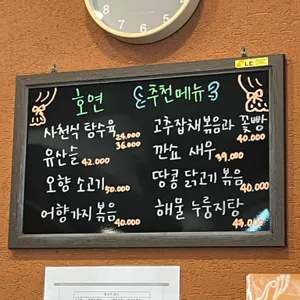 호연 추천메뉴
사천식 탕수육 24.000
36.000
유산슬 42.000
오향 소고기 50.000
어향가지볶음 40.000
고추잡채볶음과 꽃빵
40.000
깐쇼 새우 39.000
땅콩 닭고기 볶음
40.000
해물 누룽지탕
44.000